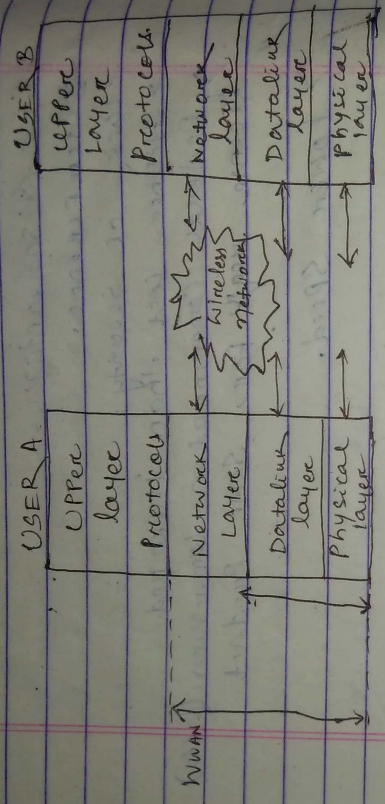 USER A
UPPer
layer
Protocols
Network
Layer
Datalink
layer
Physical
layer
Wireless
network
USER B
UPPer
Layer
Protocols
Network
layer
Datalink
layer
Physical
layer
WWAN